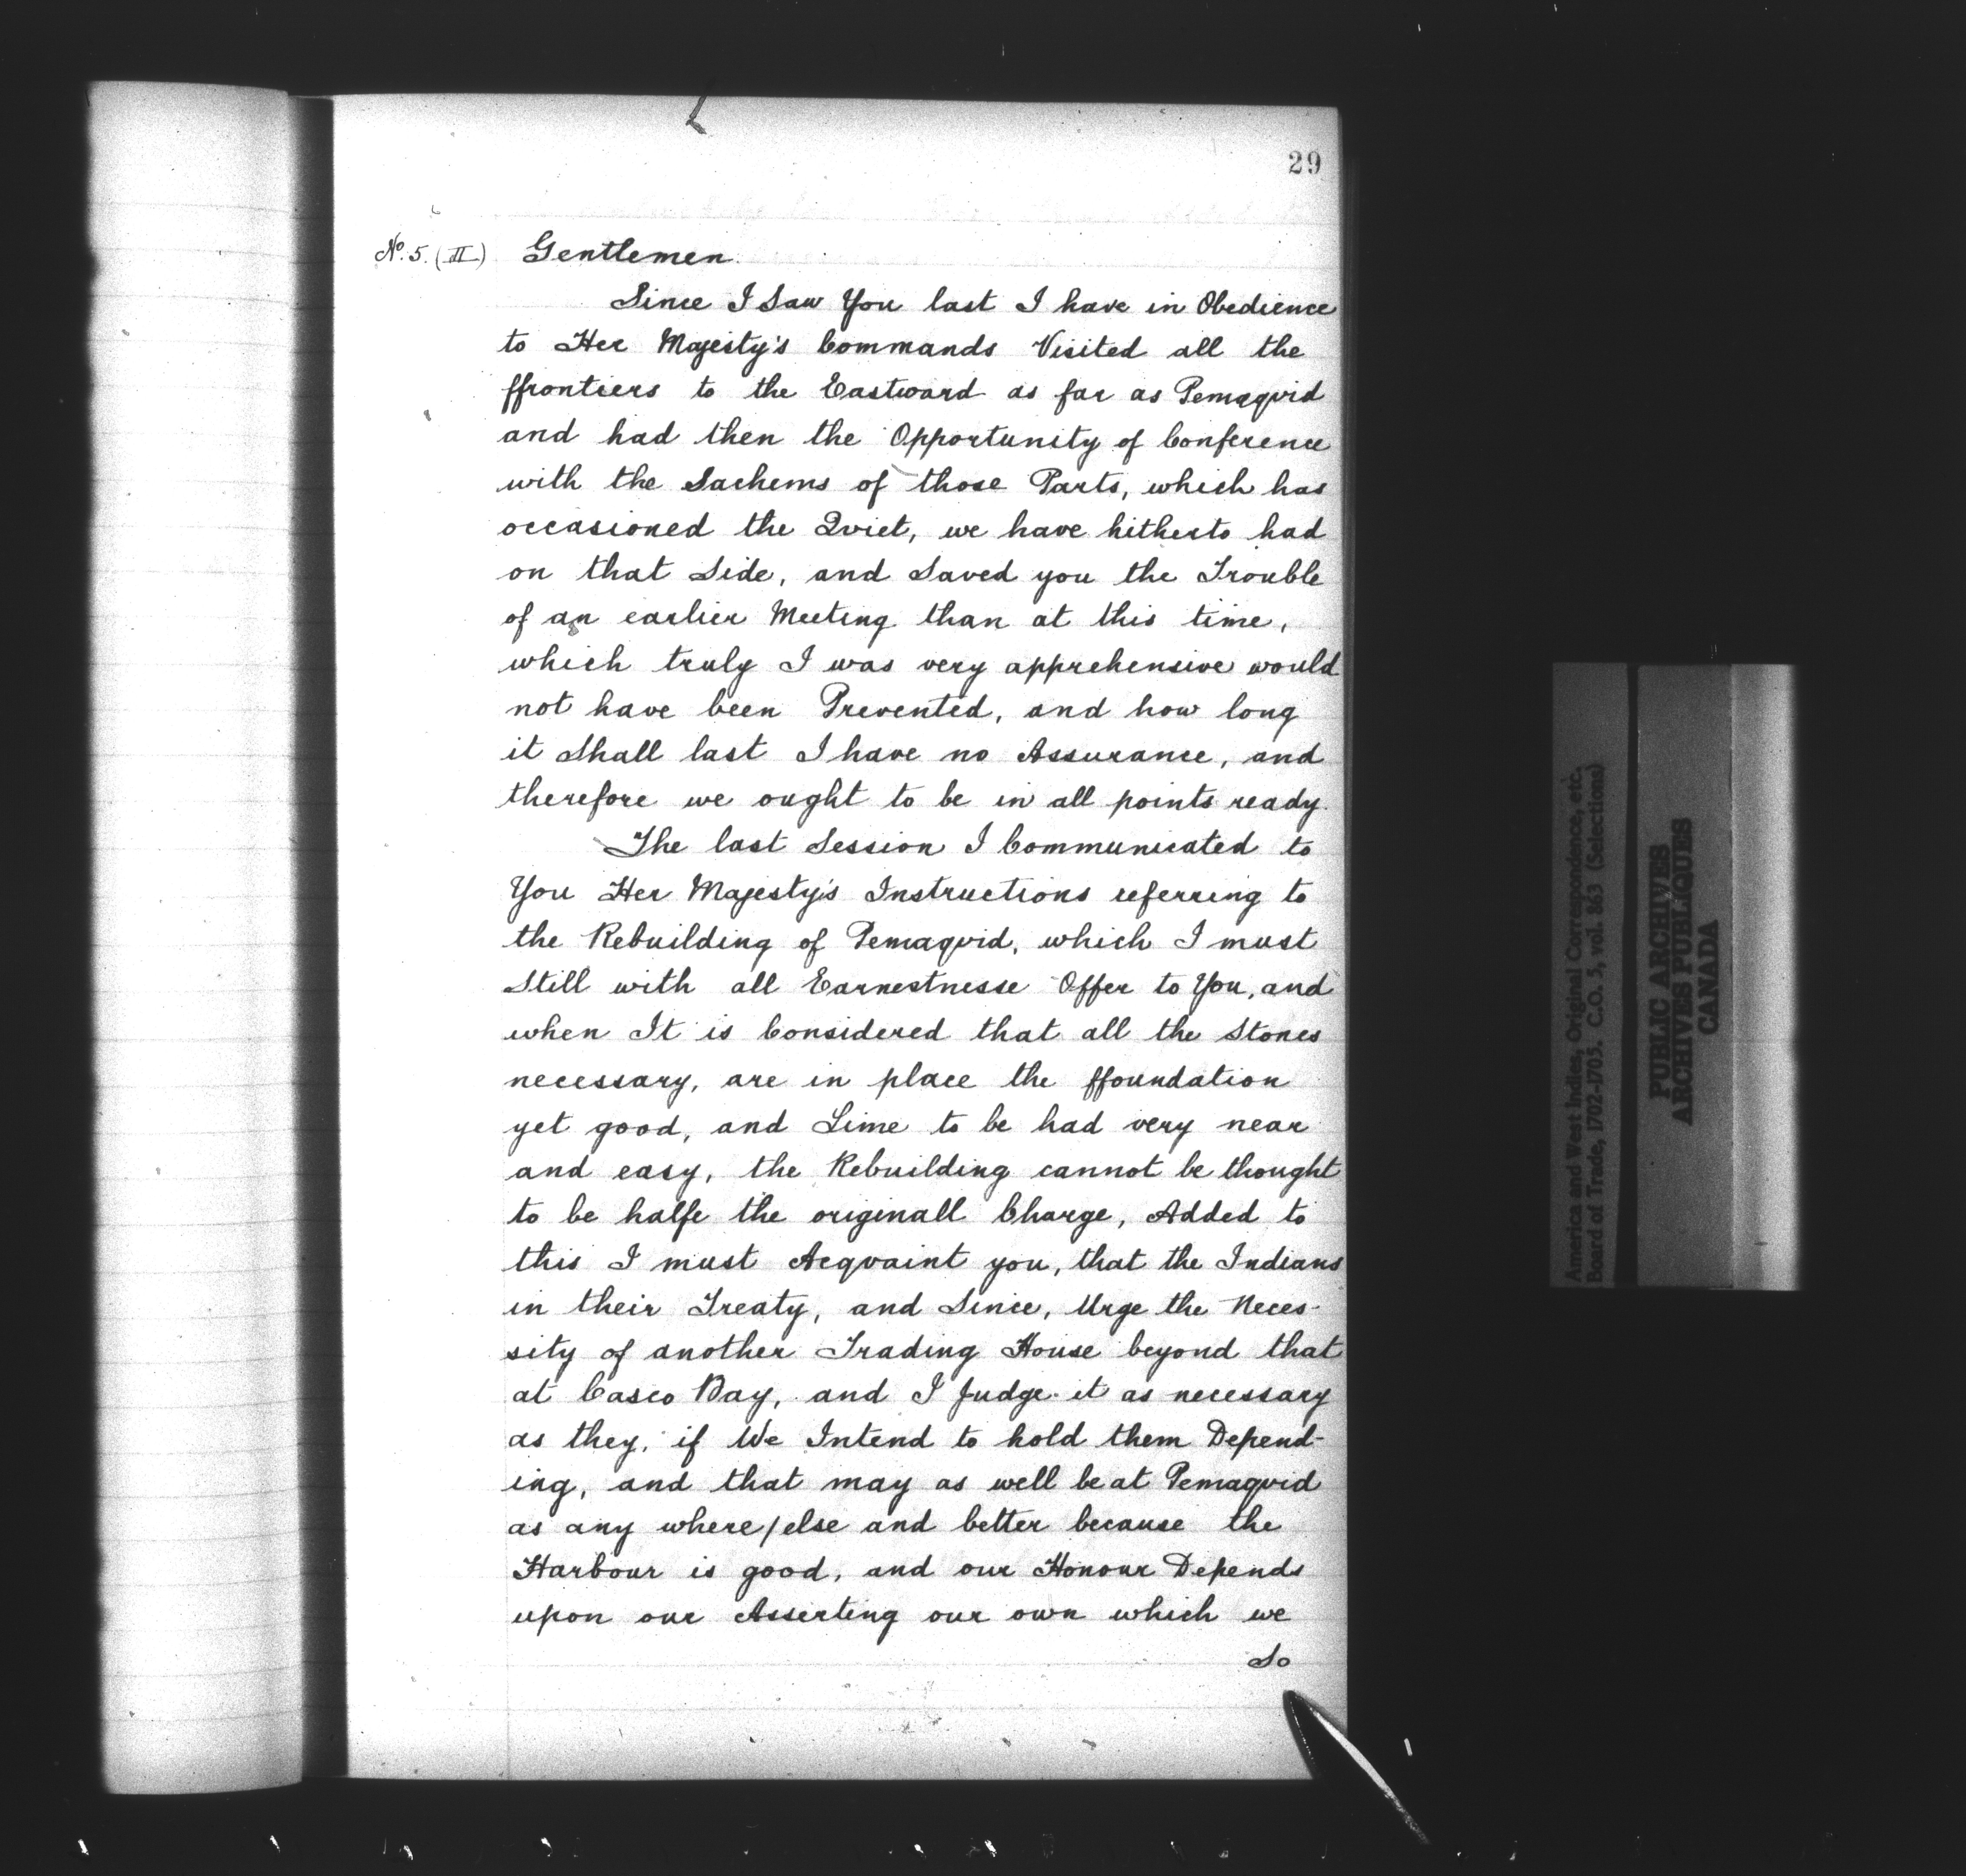 29
No. 5. (II) Gentlemen.
Since I Saw You last I have in Obedience
to Her Majesty's Commands Visited all the
ffrontiers to the Eastward as far as Pemaqvid
and had then the Opportunity of Conference
with the Sachems of those Parts, which has
occasioned the Qviet, we have hitherto had
on that Side, and Saved you the Trouble
of an earlier Meeting than at this time,
which truly I was very apprehensive would
not have been Prevented, and how long
it Shall last I have no Assurance, and
therefore we ought to be in all points ready.
The last Session I Communicated to
You Her Majesty's Instructions referring to
the Rebuilding of Pemaqvid, which I must
Still with all Earnestnesse Offer to You, and
when It is Considered that all the Stones
necessary, are in place the ffoundation
yet good, and Lime to be had very near
and easy, the Rebuilding cannot be thought
to be halfe the originall Charge, Added to
this I must Acqvaint you, that the Indians
in their Treaty, and Since, Urge the Neces-
sity of another Trading House beyond that
at Casco Bay, and I Judge it as necessary
as they, if We Intend to hold them Depend-
ing, and that may as well be at Pemaqvid
as any where/else and better because the
Harbour is good, and our Honour Depends
upon our Asserting our own which we
So
America and West Indies, Original Correspondence, etc.
Board of Trade, 1702-1705. C.O. 5, vol. 863 (Selections)
PUBLIC ARCHIVES
ARCHIVES PUBLIQUES
CANADA